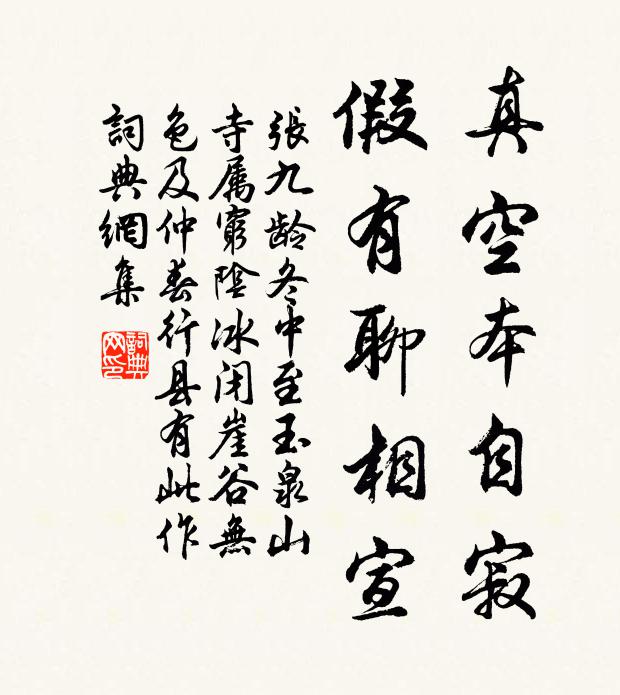 真空本自寂
假有聊相宣
張九龄冬中至玉泉山
寺属窮陰冰闭崖谷無
色及仲春行县有此作
詞典網集
詞典网印